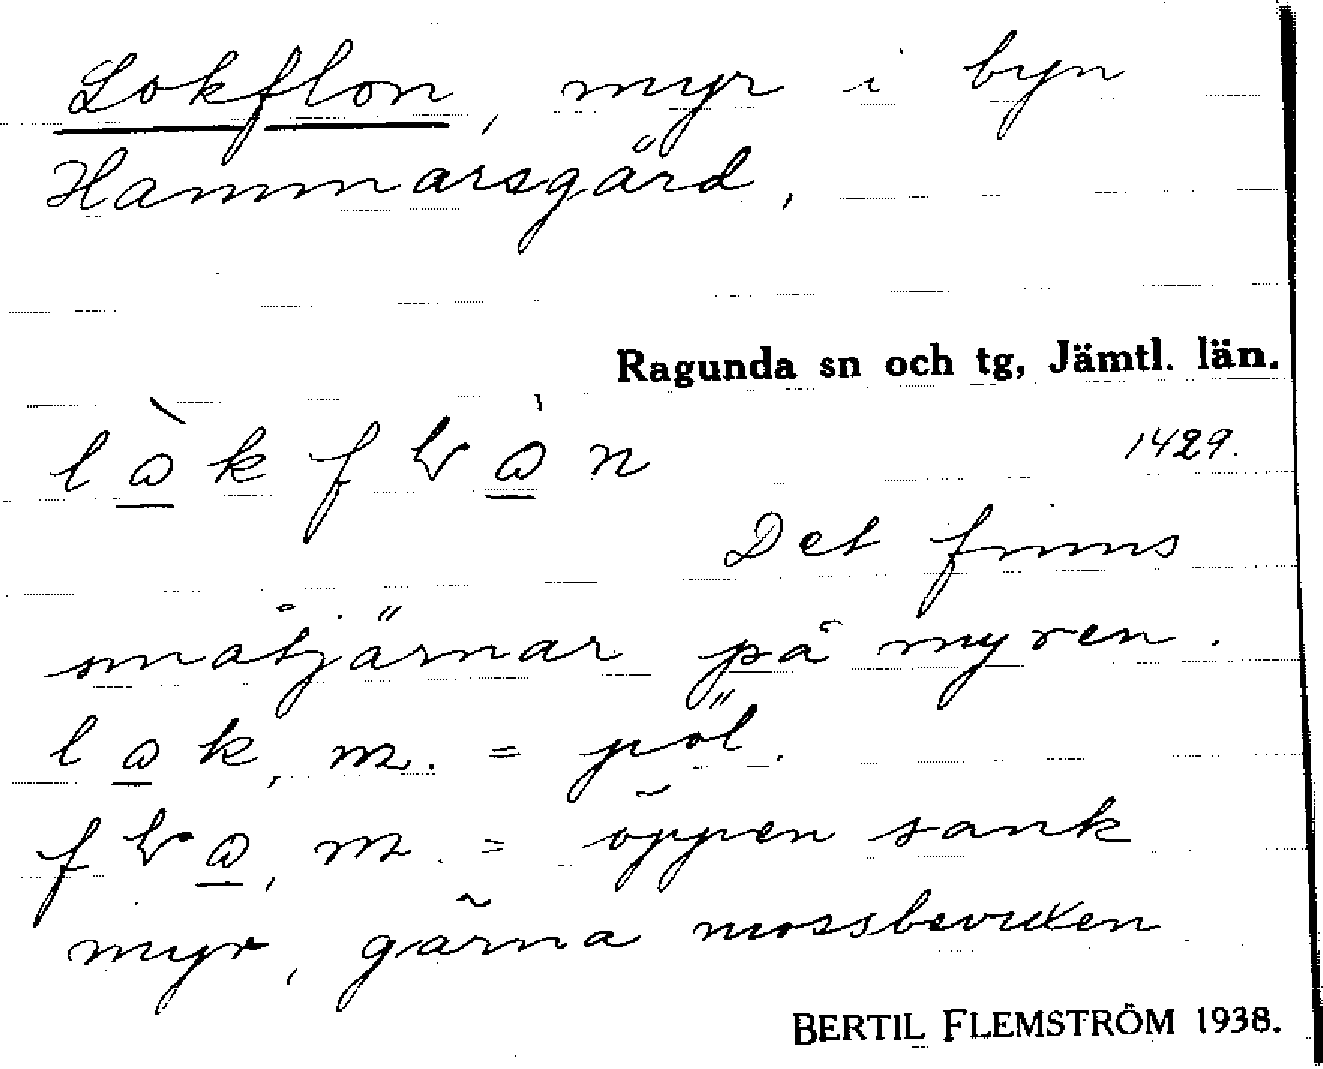 Lokflon, myr i byn
Hammarsgård.
Ragunda sn och tg, Jämtl. län.
1429.
Det finns
småtjärnar på myren.
m. = pöl.
m. = öppen sank
myr, gärna mossbevuxen
BERTIL FLEMSTRÖM 1938.